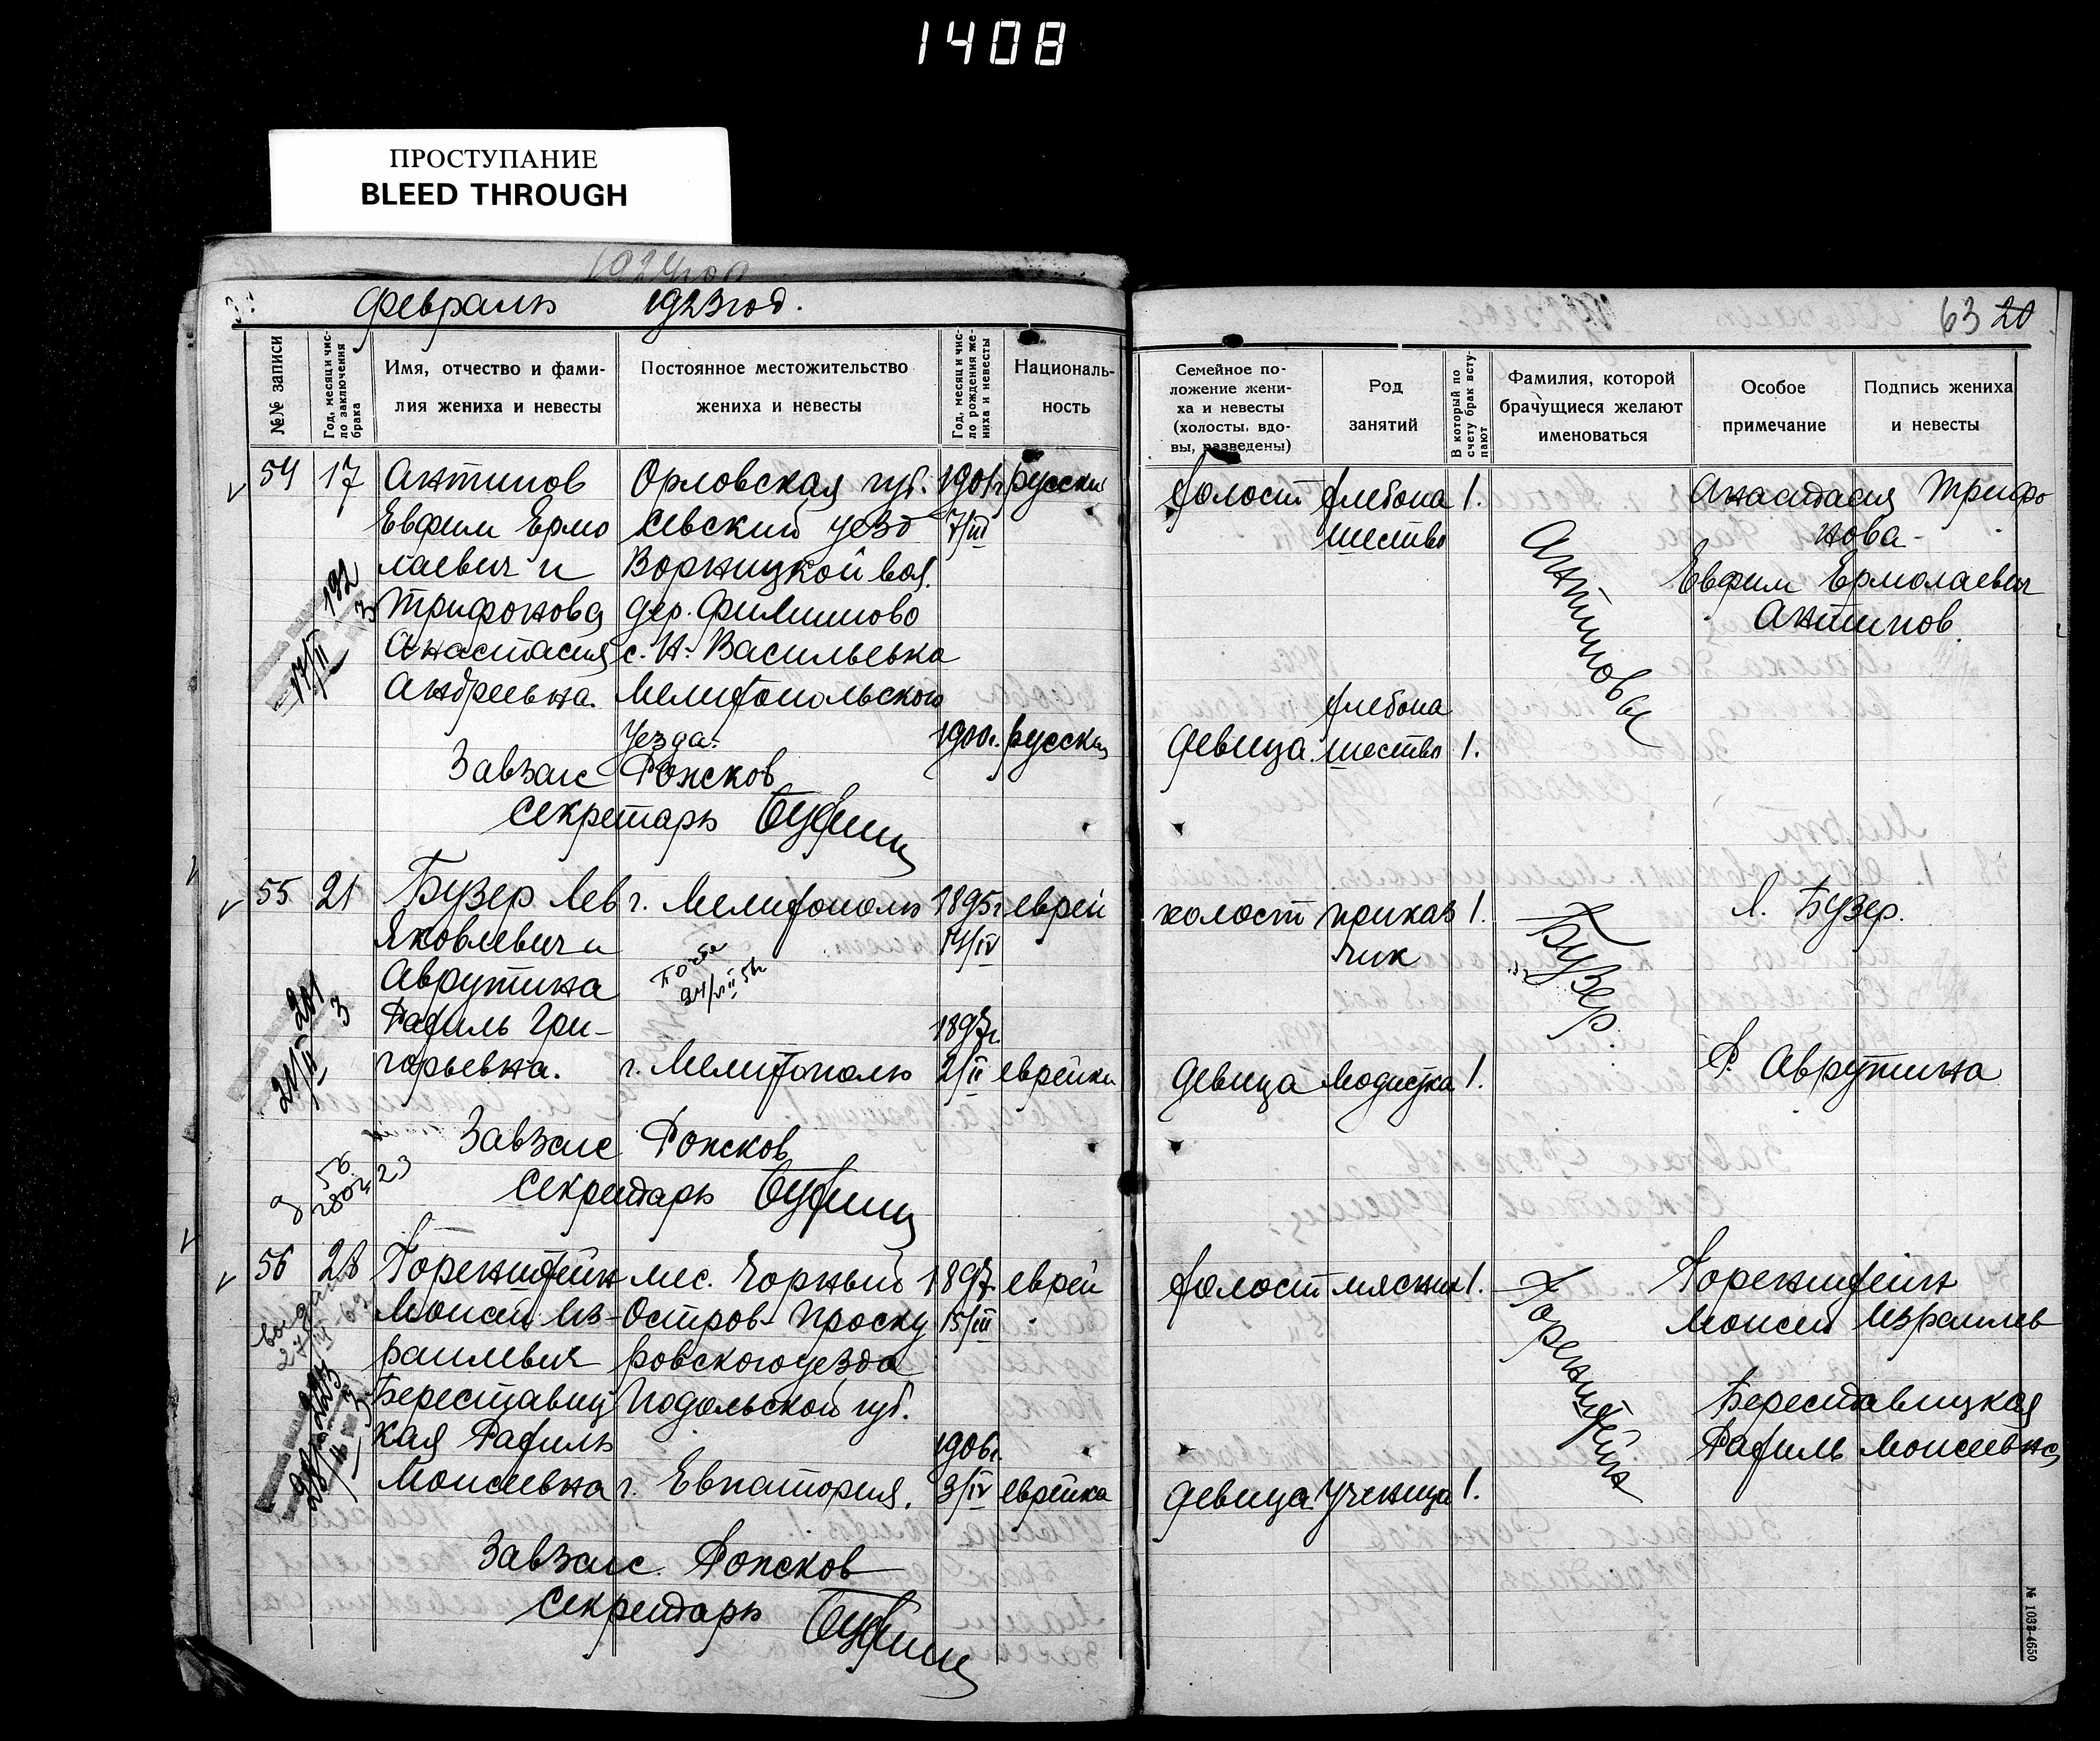 1408
ПРОСТУПАНИЕ
BLEED THROUGH
1924 год
февраль 1923 год.
63 20
№№ записи
Год, месяц и число заключения брака
Имя, отчество и фамилия жениха и невесты
Постоянное местожительство жениха и невесты
Год, месяц и число рождения жениха и невесты
Национальность
Семейное положение жениха и невесты (холосты, вдовы, разведены)
Род занятий
В который по счету брак вступают
Фамилия, которой брачущиеся желают именоваться
Особое примечание
Подпись жениха и невесты
54 17 Антипов Орловская губ. 1901г русский холост хлебопа 1. Анастасия Трифо
Евфим Ермо Севский уезд 7/III шество нова
лаевич и вол. Евфим Ермолаевич
Трифонова дер. Филиппово Антипов.
Анастасия с. Н-Васильевка
Андреевна. Мелитопольского хлебопа
Уезда. 1900г. русская девица шество 1.
Антиповы
17/II 1923
Завзагс
Секретарь
55 21 Бузер Лев г. Мелитополь 1895г еврей холост приказ 1. Л. Бузер.
Яковлевич и 14/IV чик
Аврутина
Рахиль Гри- 1897г.
горьевна. г. Мелитополь 2/II еврейка девица модистка 1. Р. Аврутина
Бузер
21/II
Завзагс
Секретарь
56 28 Горенштейн мес. Чорный 1897 еврей холост мясник 1. Горенштейн
Моисей Из- Остров Проску 15/III Моисей Израилев
раилевич ровского уезда
Береставиц Подольской губ. Береставицкая
кая Рахиль 1906г. Рахиль Моисеевна
Моисеевна г. Евпатория. 3/IV еврейка девица ученица 1.
Горенштейн
28/II
Завзагс
Секретарь
№ 1032-4650